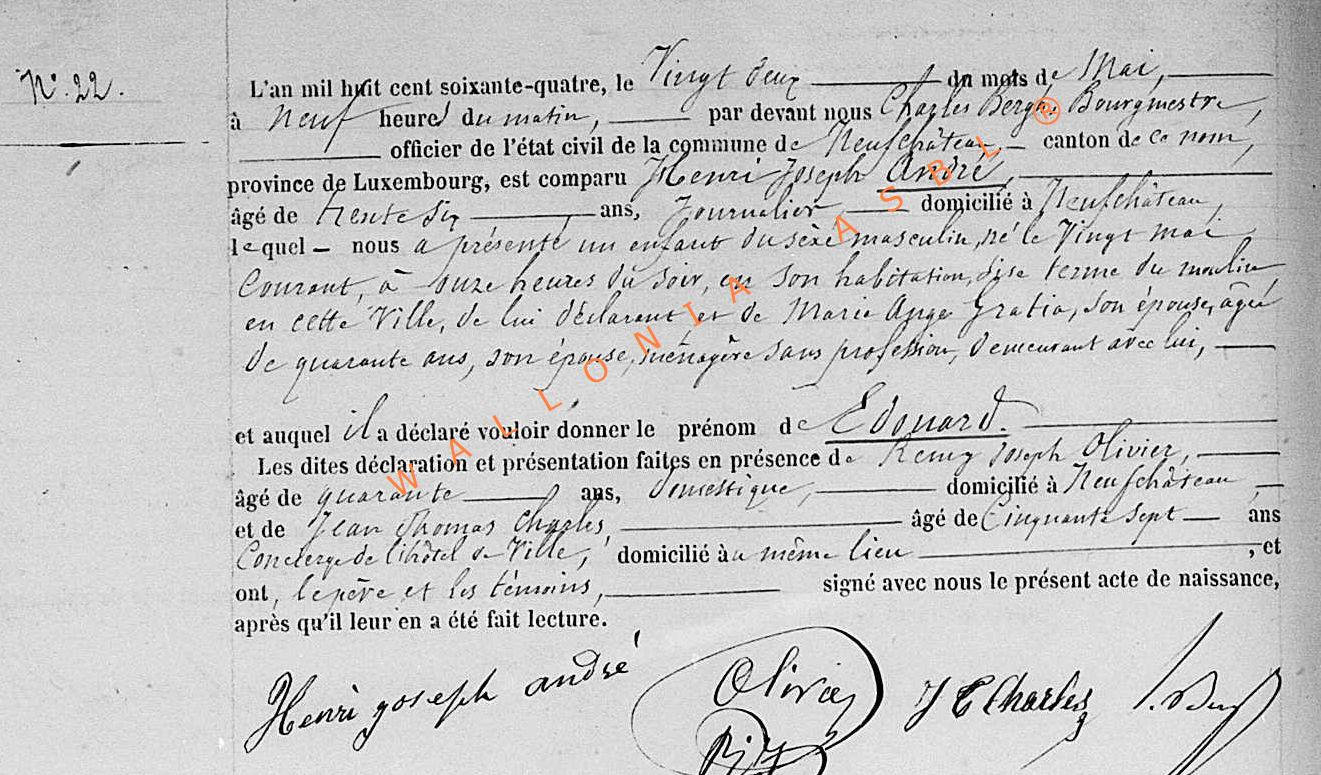 N° 22.
L'an mil huit cent soixante-quatre, le Vingt deux du mois de Mai,
à Neuf heures du matin, par devant nous Charles Bergh, Bourgmestre,
officier de l'état civil de la commune de Neufchâteau, canton de ce nom,
province de Luxembourg, est comparu Henri Joseph André,
âgé de trente six ans, Journalier, domicilié à Neufchâteau,
lequel nous a présenté un enfant du sexe masculin, né le Vingt mai
Courant, à onze heures du soir, en son habitation, dise terme du moulin
en cette Ville, de lui déclarant et de Marie Ange Gratia, son épouse, âgée
de quarante ans, son épouse, ménagère sans profession, demeurant avec lui,
et auquel il a déclaré vouloir donner le prénom de Edouard.
Les dites déclaration et présentation faites en présence de Remy Joseph Olivier,
âgé de quarante ans, domestique, domicilié à Neufchâteau,
et de Jean Thomas Charles, âgé de Cinquante sept ans
Concierge de l'hôtel de Ville, domicilié au même lieu, et
ont, le père et les témoins, signé avec nous le présent acte de naissance,
après qu'il leur en a été fait lecture.
Henri joseph andré Olivier J T Charles
WALLONIA ASBL ®